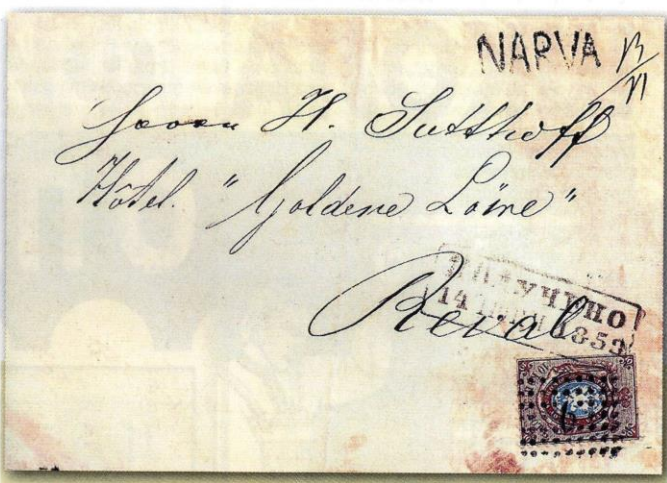 NARVA 13/VI
Herrn H. Sutthoff
Hôtel. "Goldene Löwe"
ПОЛУЧЕНО
14 1859
Reval